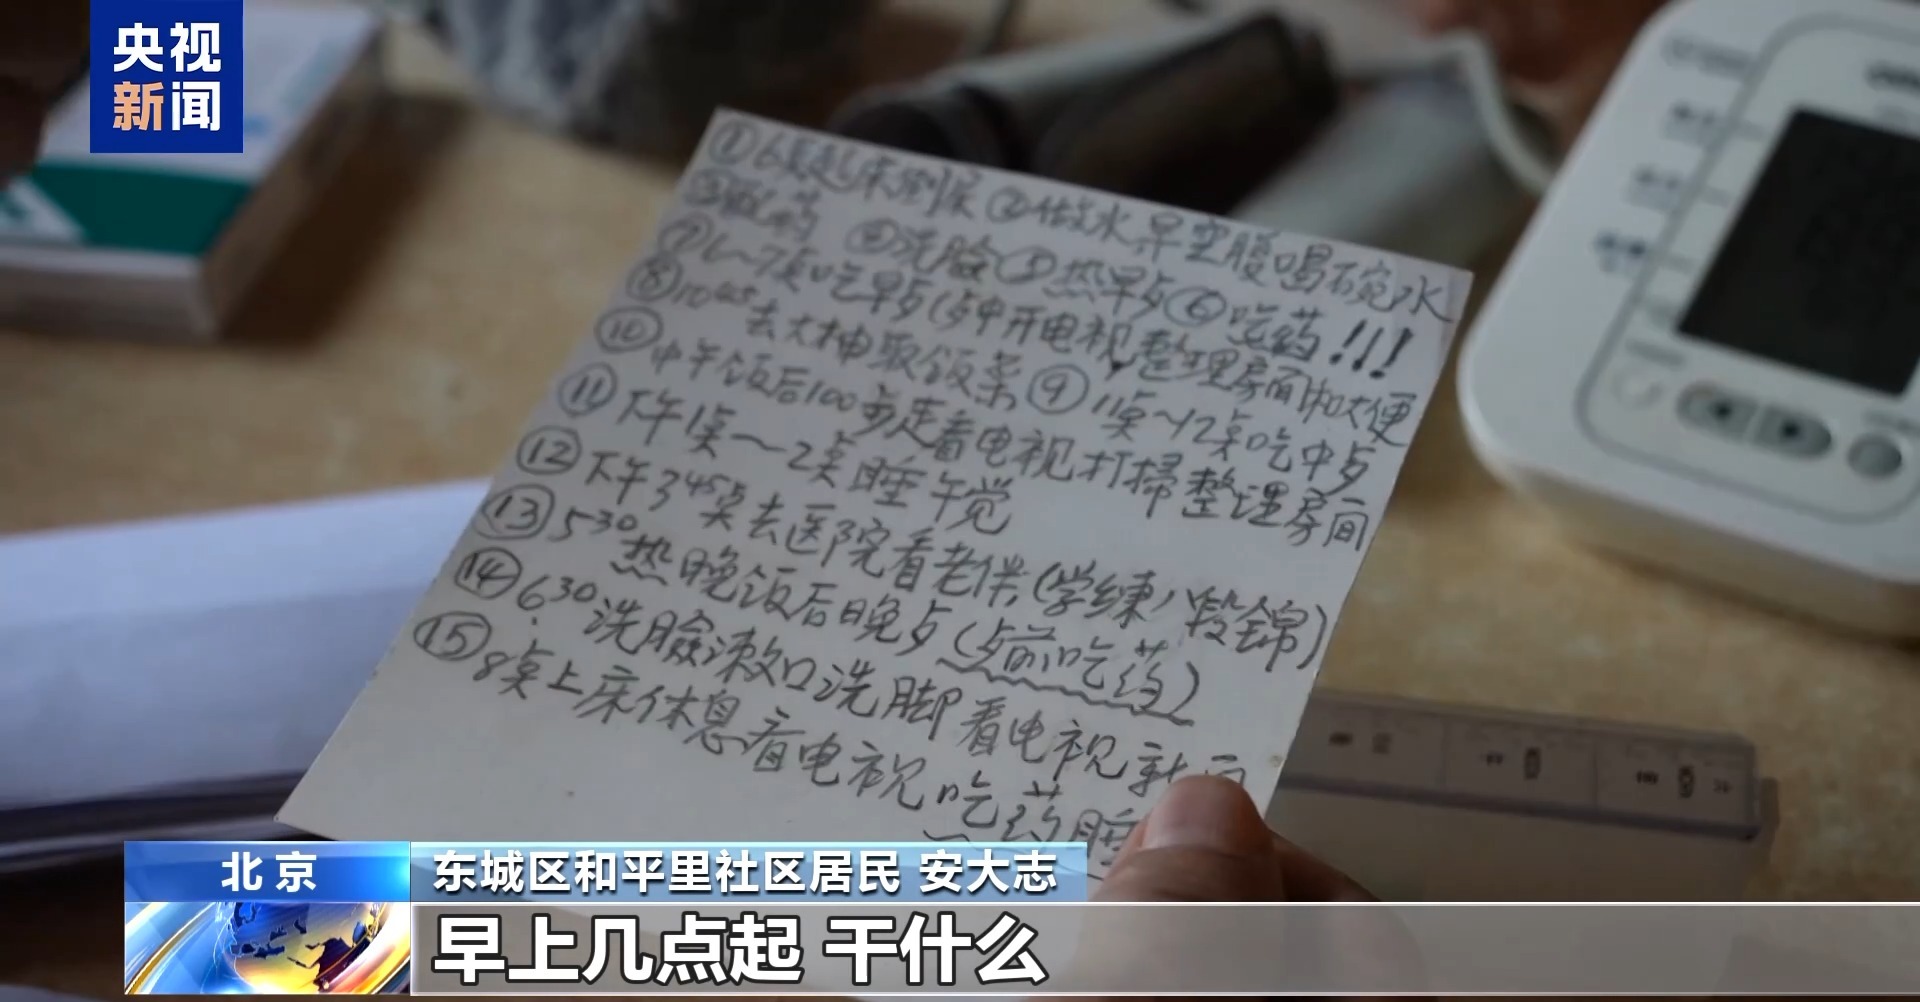 央视
新闻
①6点起床刷牙②做水早空腹喝碗水
③取药 ④洗脸⑤热早点⑥吃药!!!
⑦6~7点吃早点(点中开电视整理房间和大便
⑧10去大柚取饭菜⑨11点~12点吃中点
⑩中午饭后100步走看电视打掃整理房间
⑪下午1点~2点睡午觉
⑫下午3⁴⁵点去医院看老伴(学练八段锦)
⑬5³⁰热晚饭后晚点(点前吃药)
⑭6³⁰洗臉漱口洗脚看电视新
⑮8点上床休息看电视吃药睡
北京
东城区和平里社区居民 安大志
早上几点起 干什么